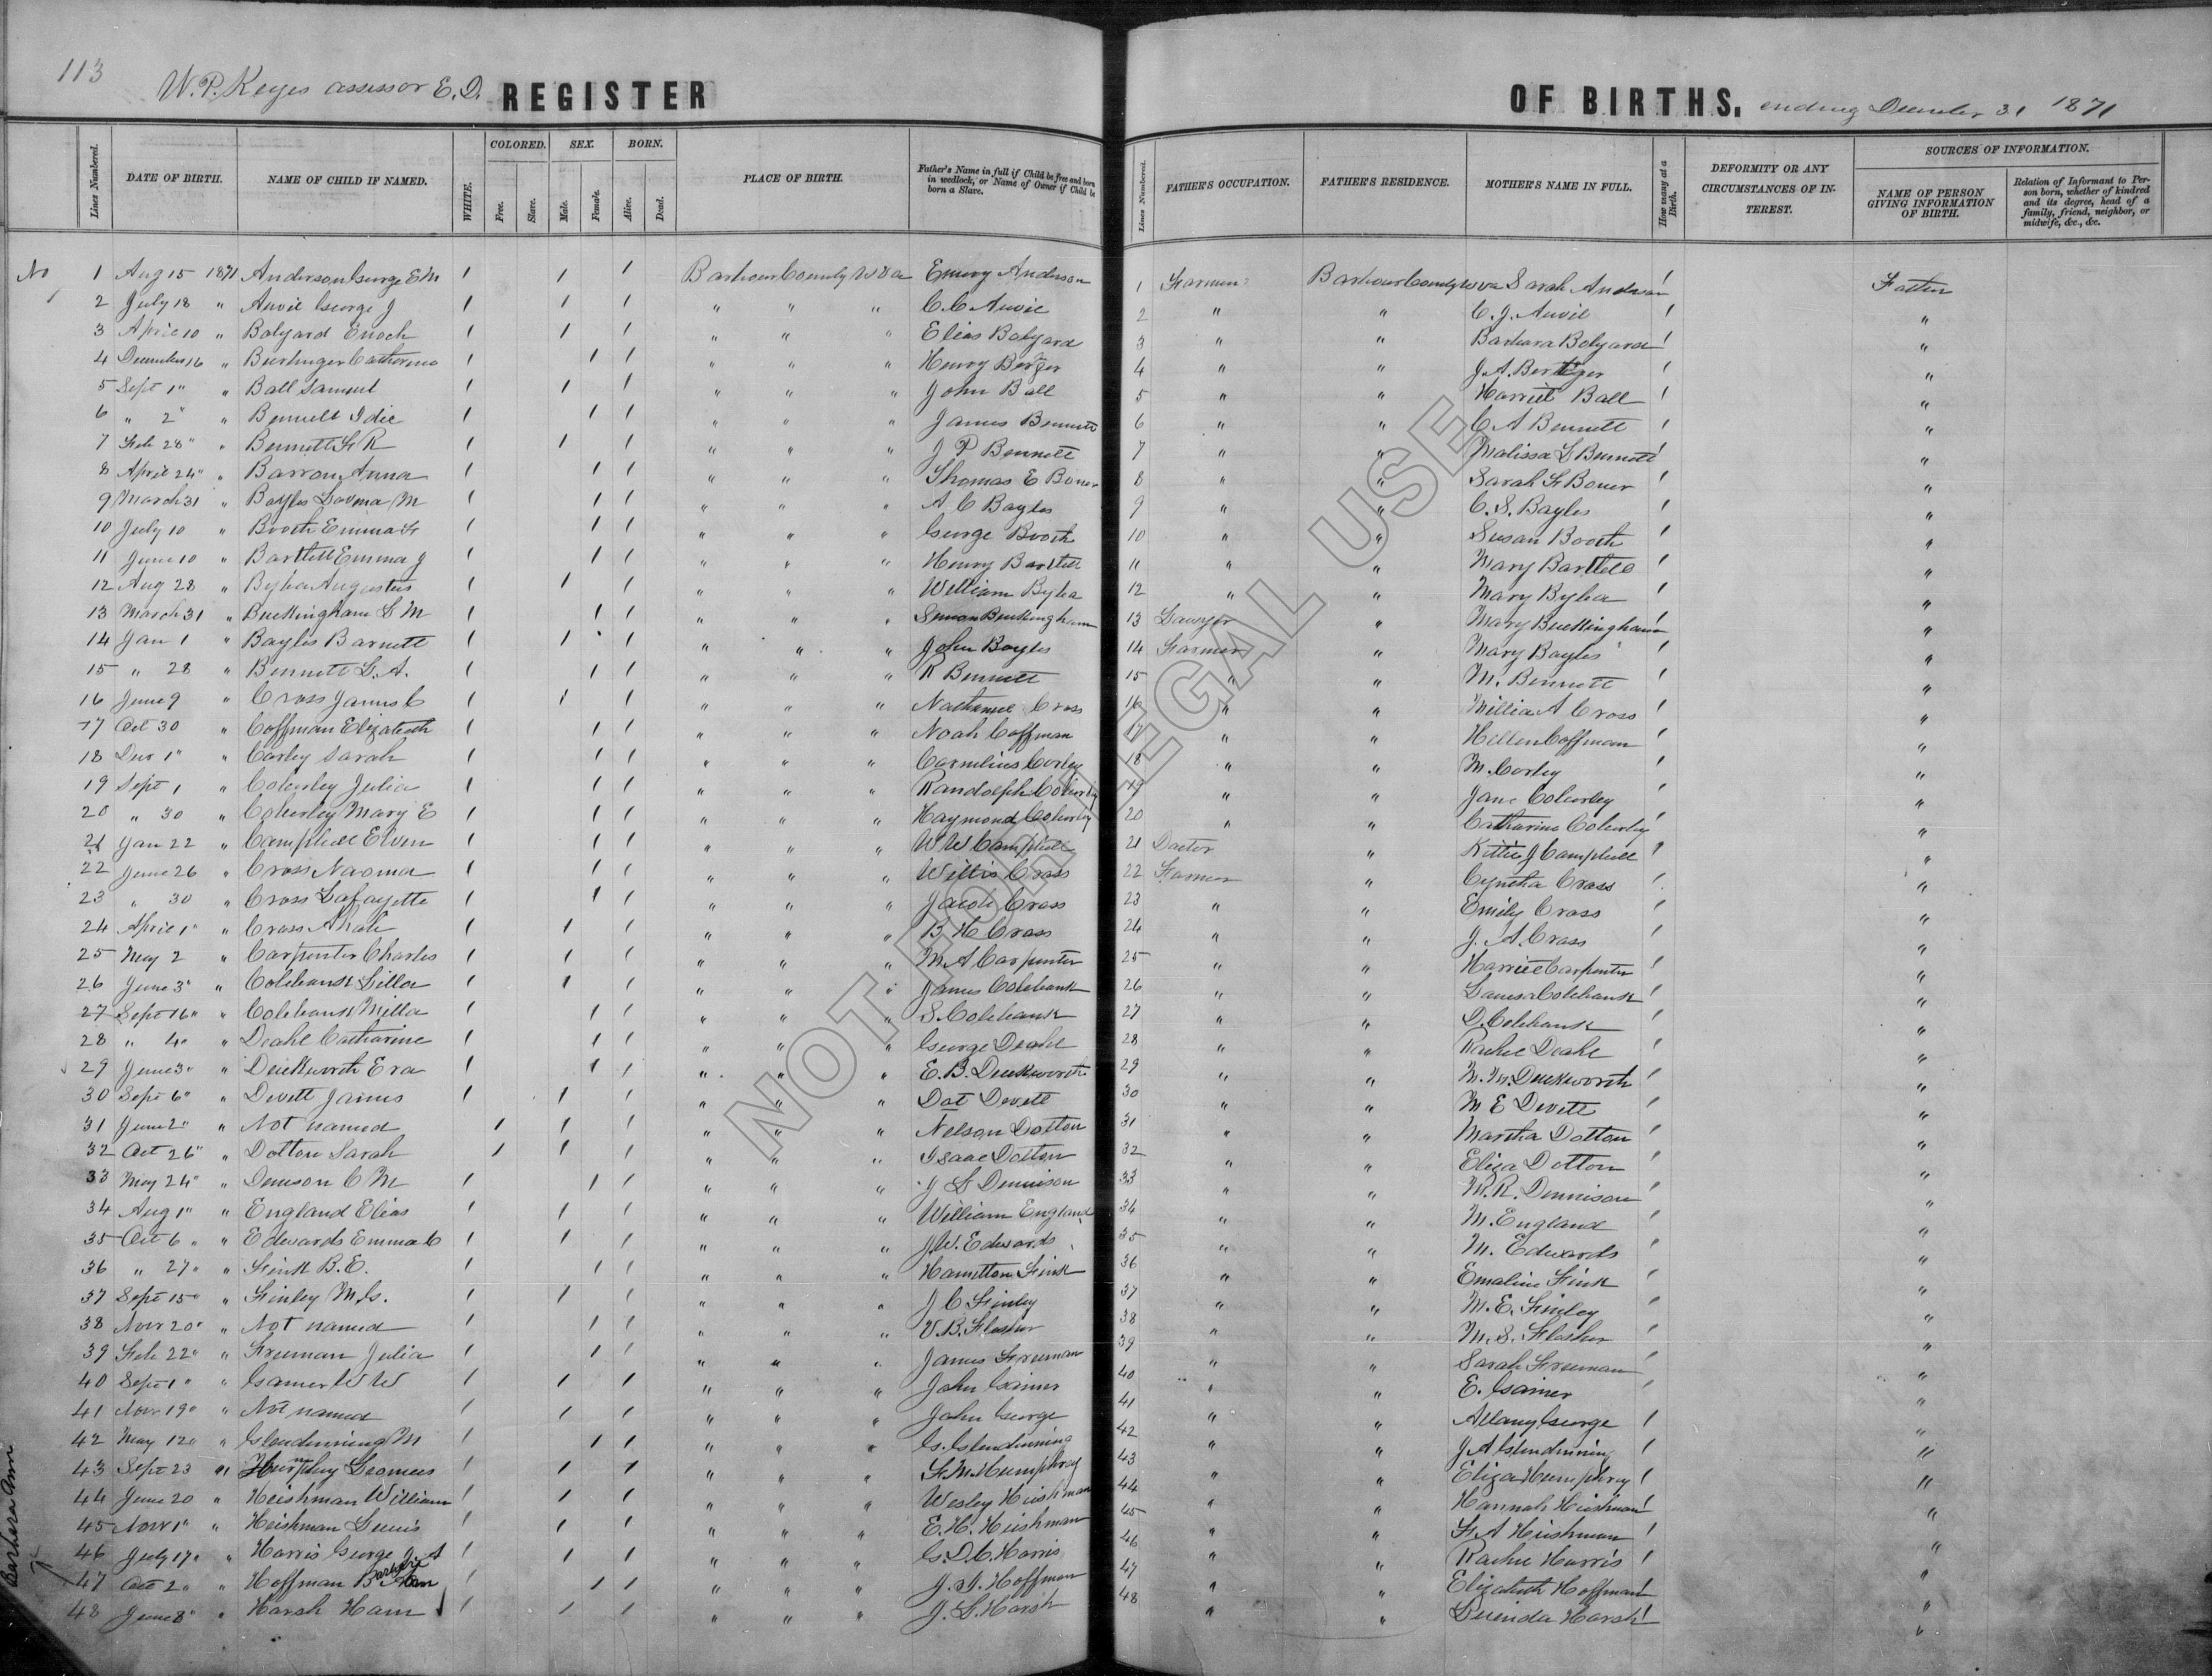 113
W. P. Keyes assessor E. D. REGISTER OF BIRTHS, ending December 31 1871
Lines Numbered. DATE OF BIRTH. NAME OF CHILD IF NAMED. WHITE. COLORED. Free. Slave. SEX. Male. Female. BORN. Alive. Dead. PLACE OF BIRTH. Father's Name in full if Child be free and born in wedlock, or Name of Owner if Child be born a Slave. Lines Numbered. FATHER'S OCCUPATION. FATHER'S RESIDENCE. MOTHER'S NAME IN FULL. How many at a Birth. DEFORMITY OR ANY CIRCUMSTANCES OF INTEREST. SOURCES OF INFORMATION. NAME OF PERSON GIVING INFORMATION OF BIRTH. Relation of Informant to Person born, whether of kindred and its degree, head of a family, friend, neighbor, or midwife, &c., &c.
No 1 Aug 15 1871 Anderson George E M 1 1 1 Barbour County W Va Emery Anderson 1 Farmer Barbour County W Va Sarah Anderson 1 Father
2 July 18 " Auvil George J 1 1 1 " " " C. C. Auvil 2 " " C. J. Auvil 1 "
3 April 10 " Bolyard Enoch 1 1 1 " " " Elias Bolyard 3 " " Barbara Bolyard 1 "
4 December 16 " Catherine 1 1 1 " " " Henry 4 " " J. A. 1 "
5 Sept 1 " " Ball Samuel 1 1 1 " " " John Ball 5 " " Harriet Ball 1 "
6 " 2 " " Bennett Idie 1 1 1 " " " James Bennett 6 " " C A Bennett 1 "
7 Feb 28 " " Bennett F R 1 1 1 " " " J P Bennett 7 " " Malissa S Bennett 1 "
8 April 24 " " Barron Anna 1 1 1 " " " Thomas E Boner 8 " " Sarah F Boner 1 "
9 March 31 " Bayles Lovma M 1 1 1 " " " A C Bayles 9 " " C. S. Bayles 1 "
10 July 10 " Booth Emma F 1 1 1 " " " George Booth 10 " " Susan Booth 1 "
11 June 10 " Bartlett Emma J 1 1 1 " " " Henry Bartlett 11 " " Mary Bartlett 1 "
12 Aug 28 " Byba Augustus 1 1 1 " " " William Byba 12 " " Mary Byba 1 "
13 March 31 " Buckingham L M 1 1 1 " " " Simon Buckingham 13 Lawyer " Mary Buckingham 1 "
14 Jan 1 " Bayles Barnett 1 1 1 " " " John Bayles 14 Farmer " Mary Bayles 1 "
15 " 28 " Bennett L. A. 1 1 1 " " " R Bennett 15 " " M. Bennett 1 "
16 June 9 " Cross James C 1 1 1 " " " Nathaniel Cross 16 " " Millia A Cross 1 "
17 Oct 30 " Coffman Elizabeth 1 1 1 " " " Noah Coffman 17 " " Hellen Coffman 1 "
18 Dec 1 " " Corley Sarah 1 1 1 " " " Cornelius Corley 18 " " M. Corley 1 "
19 Sept 1 " Coberley Julia 1 1 1 " " " Randolph Coberly 19 " " Jane Coberley 1 "
20 " 30 " Coberley Mary E 1 1 1 " " " Haymond Coberly 20 " " Catharine Coberley 1 "
21 Jan 22 " Campbell Elven 1 1 1 " " " W W Campbell 21 Doctor " Kittie J Campbell 1 "
22 June 26 " Cross Naoma 1 1 1 " " " Willis Cross 22 Farmer " Cyntha Cross 1 "
23 " 30 " Cross Lafayette 1 1 1 " " " Jacob Cross 23 " " Emily Cross 1 "
24 April 1 " " Cross Ahab 1 1 1 " " " B H Cross 24 " " J. A. Cross 1 "
25 May 2 " Carpenter Charles 1 1 1 " " " M A Carpenter 25 " " Harriet Carpenter 1 "
26 June 3 " " Colebank Lilla 1 1 1 " " " James Colebank 26 " " Colebank 1 "
27 Sept 16 " " Colebank Milla 1 1 1 " " " S. Colebank 27 " " D. Colebank 1 "
28 " 4 " " Deahl Catharine 1 1 1 " " " George Deahl 28 " " Rachel Deahl 1 "
29 June 3 " " Duckworth Eva 1 1 1 " " " E. B. Duckworth 29 " " M. M. Duckworth 1 "
30 Sept 6 " " Devett James 1 1 1 " " " Dat Devett 30 " " M E Devett 1 "
31 June 2 " " Not named 1 1 1 " " " Nelson Dotton 31 " " Martha Dotton 1 "
32 Oct 26 " " Dotton Sarah 1 1 1 " " " Isaac Dotton 32 " " Eliza Dotton 1 "
33 May 24 " " Denison C M 1 1 1 " " " J S Dennison 33 " " M. R. Dennison 1 "
34 Aug 1 " " England Elias 1 1 1 " " " William England 34 " " M. England 1 "
35 Oct 6 " " Edwards Emma C 1 1 1 " " " J. W. Edwards 35 " " M. Edwards 1 "
36 " 27 " " Fink B. E. 1 1 1 " " " Hamilton Fink 36 " " Emaline Fink 1 "
37 Sept 15 " " Finley M. G. 1 1 1 " " " J C Finley 37 " " M. E. Finley 1 "
38 Novr 20 " " Not named 1 1 1 " " " V. B. Flesher 38 " " M. S. Flesher 1 "
39 Feb 22 " " Freeman Julia 1 1 1 " " " James Freeman 39 " " Sarah Freeman 1 "
40 Sept 1 " " Gainer W W 1 1 1 " " " John Gainer 40 " " E. Gainer 1 "
41 Novr 19 " " Not named 1 1 1 " " " John George 41 " " Allany George 1 "
42 May 12 " " Glendinning M 1 1 1 " " " G. Glendinning 42 " " J A Glendinning 1 "
43 Sept 23 " Humphry 1 1 1 " " " F. M. Humphrey 43 " " Eliza Humphrey 1 "
44 June 20 " Heishman William 1 1 1 " " " Wesley Heishman 44 " " Hannah Heishman 1 "
45 Novr 1 " " Heishman Lewis 1 1 1 " " " E. H. Heishman 45 " " F. A Heishman 1 "
46 July 17 " " Harris George J. A 1 1 1 " " " G. D. C. Harris 46 " " Rachel Harris 1 "
47 Oct 2 " " Hoffman Barbara Ann 1 1 1 " " " J. I. Hoffman 47 " " Elizabeth Hoffman 1 "
48 June 8 " " Harsh Ham 1 1 1 " " " J. L. Harsh 48 " " Luenda Harsh 1 "
Barbera Ann
NOT FOR LEGAL USE